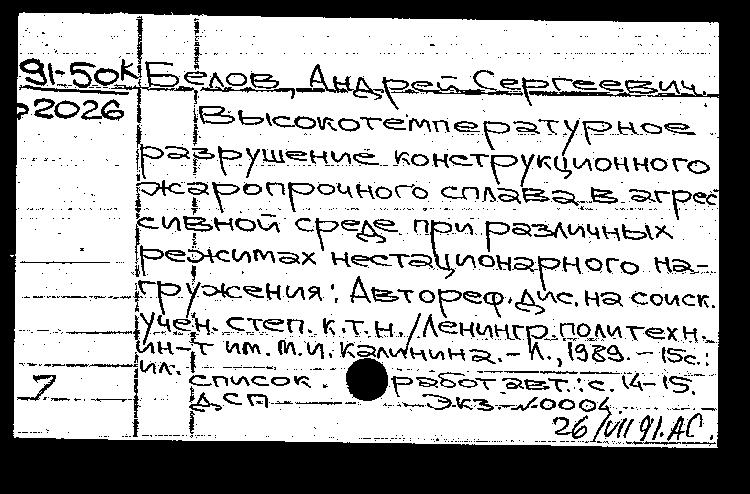 91-50к Белов, Андрей Сергеевич.
р2026 Высокотемпературное
разрушение конструкционного
жаропрочного сплава в агрес
сивной среде при различных
режимах нестационарного на-
гружения: Автореф. дис. на соиск.
учен. степ. к.т.н. / Ленингр. политехн.
ин-т им. М.И. Калинина. - Л., 1989. - 15с.:
ил.
7 список. работ авт.: с. 14-15.
ДСП Экз. №0004
26/VII 91. АС.